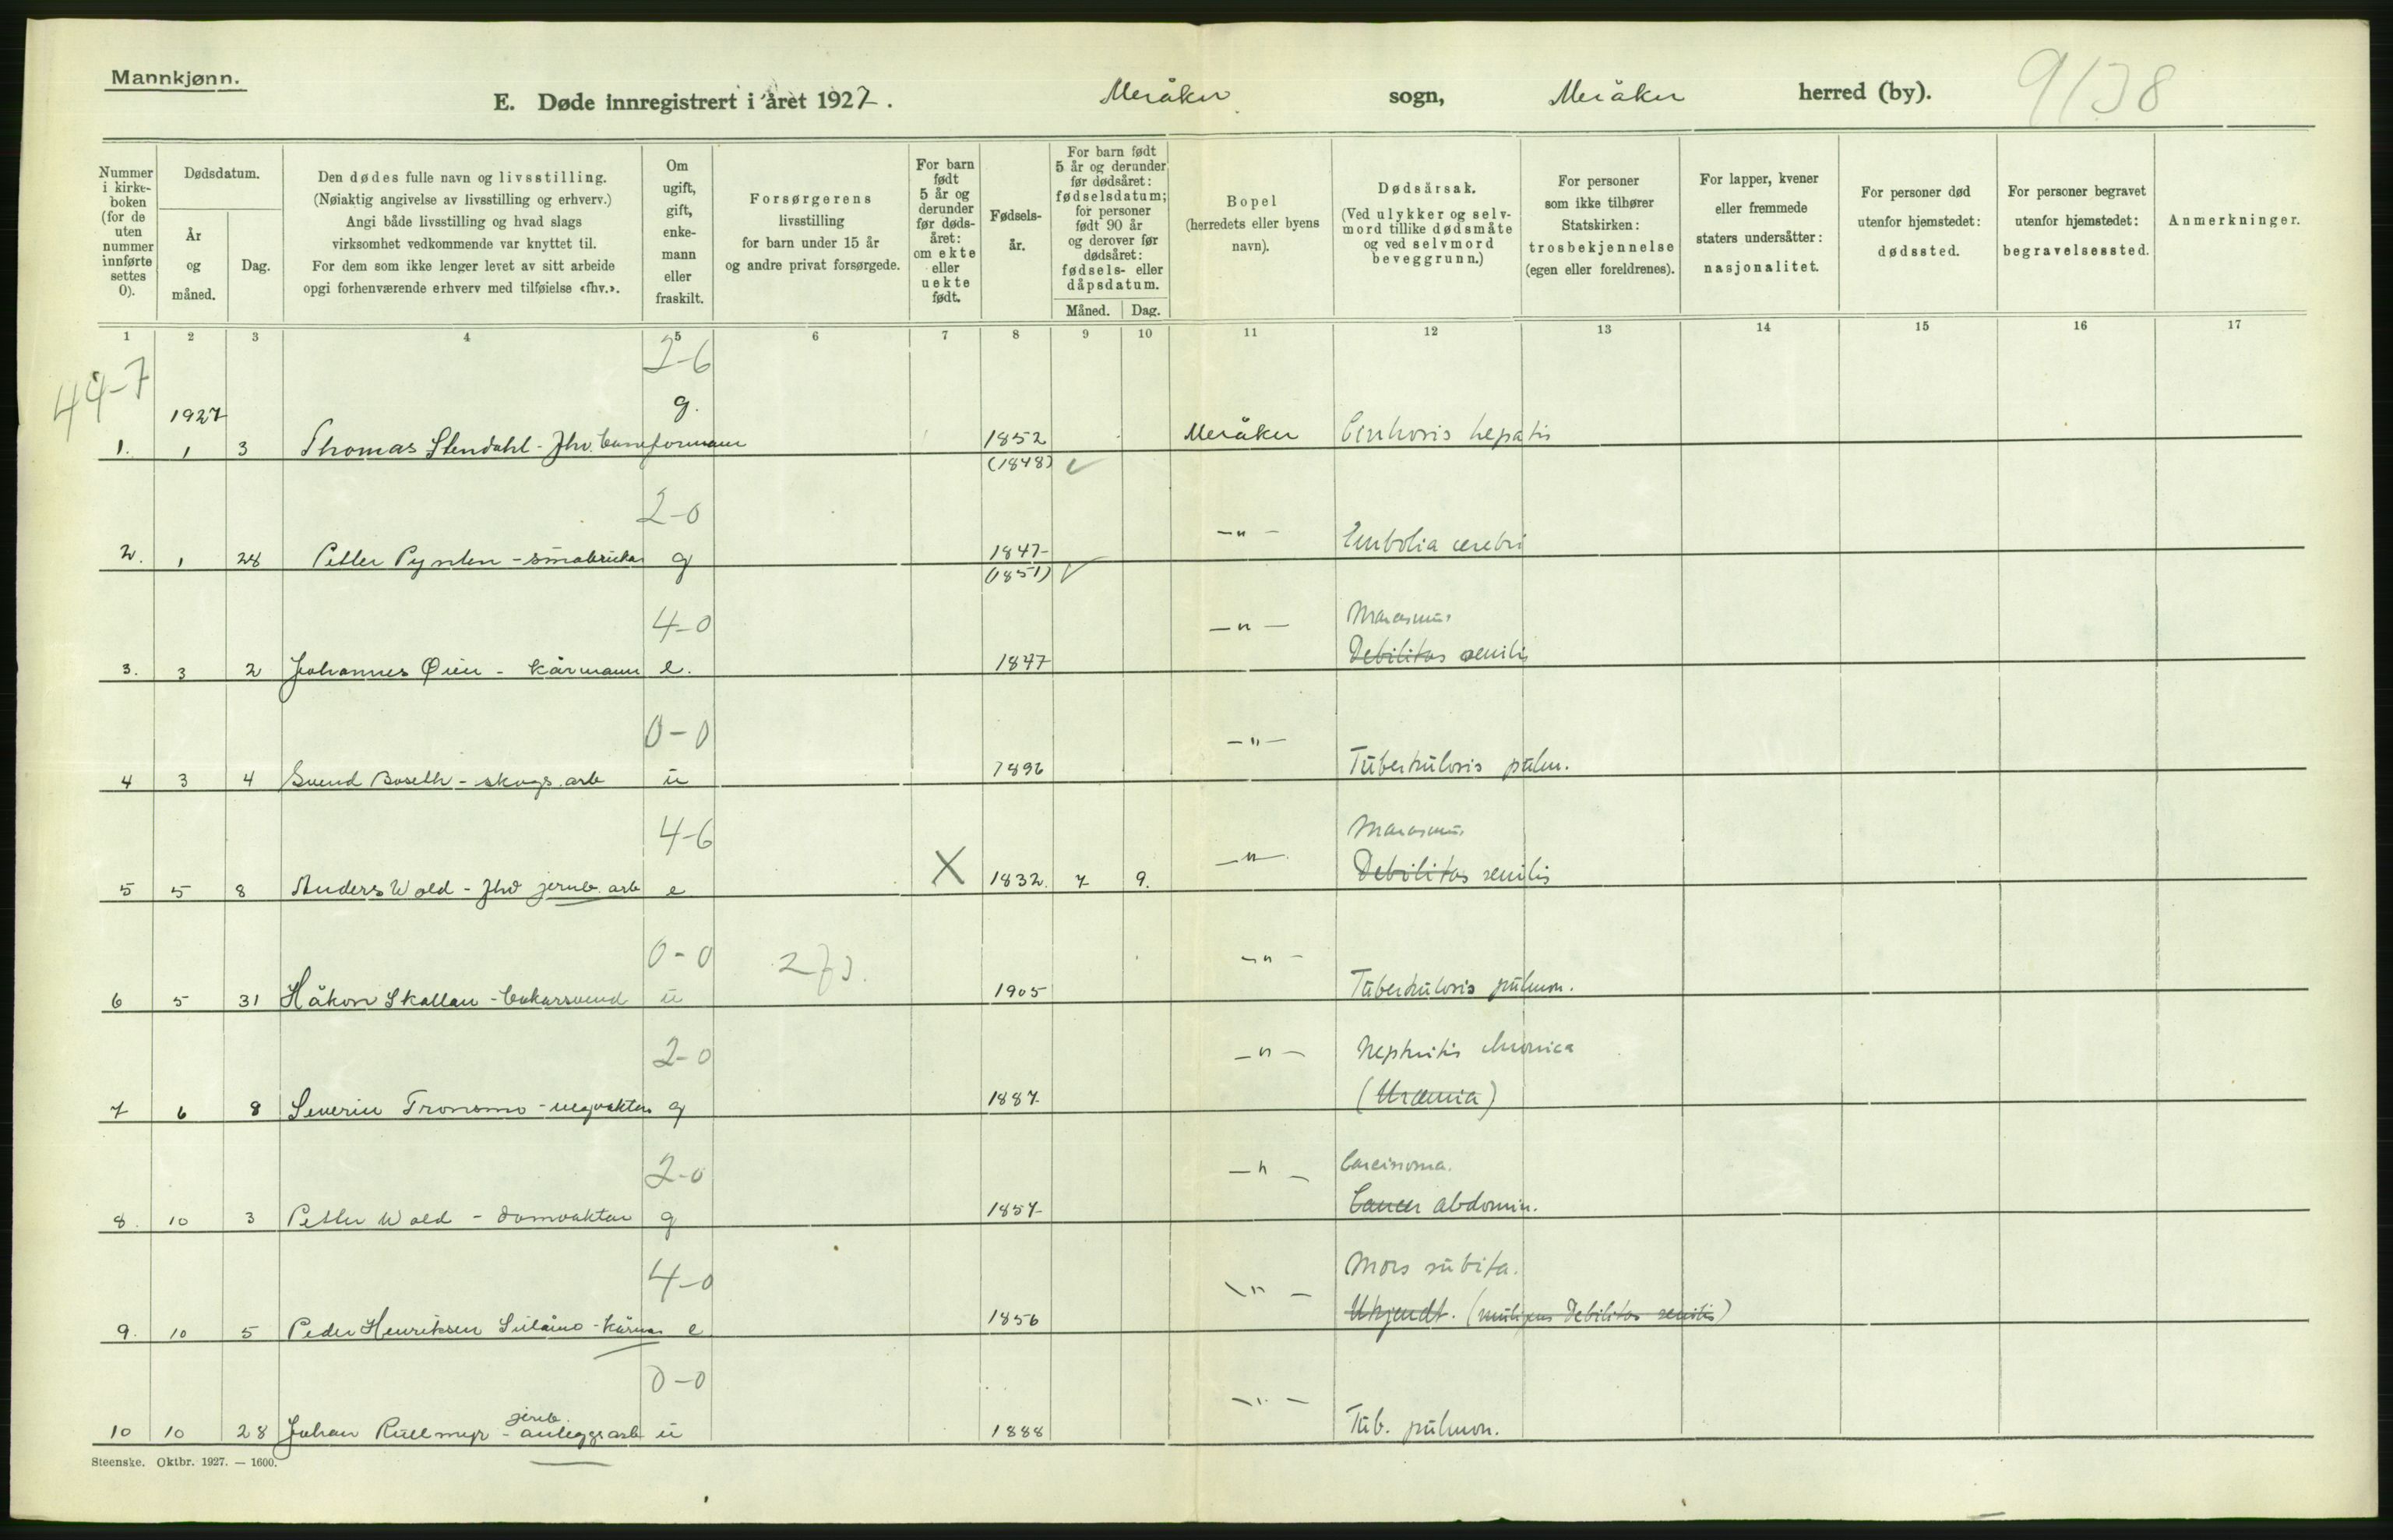 Mannkjønn.
E. Døde innregistrert i året 1927. Meråker sogn, Meråker herred (by). 9138
Nummer i kirkeboken (for de uten nummer innførte settes 0).
Dødsdatum.
År og måned.
Dag.
Den dødes fulle navn og livsstilling.
(Nøiaktig angivelse av livsstilling og erhverv.)
Angi både livsstilling og hvad slags
virksomhet vedkommende var knyttet til.
For dem som ikke lenger levet av sitt arbeide
opgi forhenværende erhverv med tilføielse «fhv.».
Om ugift, gift, enkemann eller fraskilt.
Forsørgerens
livsstilling
for barn under 15 år
og andre privat forsørgede.
For barn født 5 år og derunder før dødsåret: om ekte eller uekte født.
Fødselsår.
For barn født 5 år og derunder før dødsåret: fødselsdatum; for personer født 90 år og derover før dødsåret: fødsels- eller dåpsdatum.
Måned. Dag.
Bopel
(herredets eller byens
navn).
Dødsårsak.
(Ved ulykker og selvmord tillike dødsmåte og ved selvmord beveggrunn.)
For personer
som ikke tilhører
Statskirken:
trosbekjennelse
(egen eller foreldrenes).
For lapper, kvener
eller fremmede
staters undersåtter:
nasjonalitet.
For personer død
utenfor hjemstedet:
dødssted.
For personer begravet
utenfor hjemstedet:
begravelsessted.
Anmerkninger.
1 2 3 4 5 6 7 8 9 10 11 12 13 14 15 16 17
44-7
2-6
1927 g.
1. 1 3 Thomas Stendahl - fhv. baneformann 1852 Meråker Cirrhosis hepatis
(1848) ✓
2-0
2. 1 28 Petter Pynten - småbruker g 1847 -"- Embolia cerebri
(1851) ✓
4-0 Marasmus
3. 3 2 Johannes Øien - kårmann e. 1847 -"- Debilitas senilis
0-0
4 3 4 Svend Boseth - skogs.arb u 1896 -"- Tuberkulosis pulm.
4-6 Marasmus
5 5 8 Anders Wold - fhv jernb. arb e X 1832. 7 9. -"- Debilitas senilis
0-0 273.
6 5 31 Håkon Skallan - bakersvend u 1905 -"- Tuberkulosis pulmon.
2-0 -"- Nephritis chronica
7 6 8 Severin Tronsmo - vegvokter g 1887 (Uræmia)
2-0 -"- Carcinoma.
8. 10 3 Petter Wold - domvokter g 1857 Cancer abdomin.
4-0 -"- Mors subita.
9. 10 5 Peder Henriksen - kårm e 1856 Ukjendt. (muligens Debilitas senilis)
0-0 -"-
jernb.
10 10 28 Johan Rullmyr - anleggsarb u 1888 Tub. pulmon.
Steenske. Oktbr. 1927. — 1600.